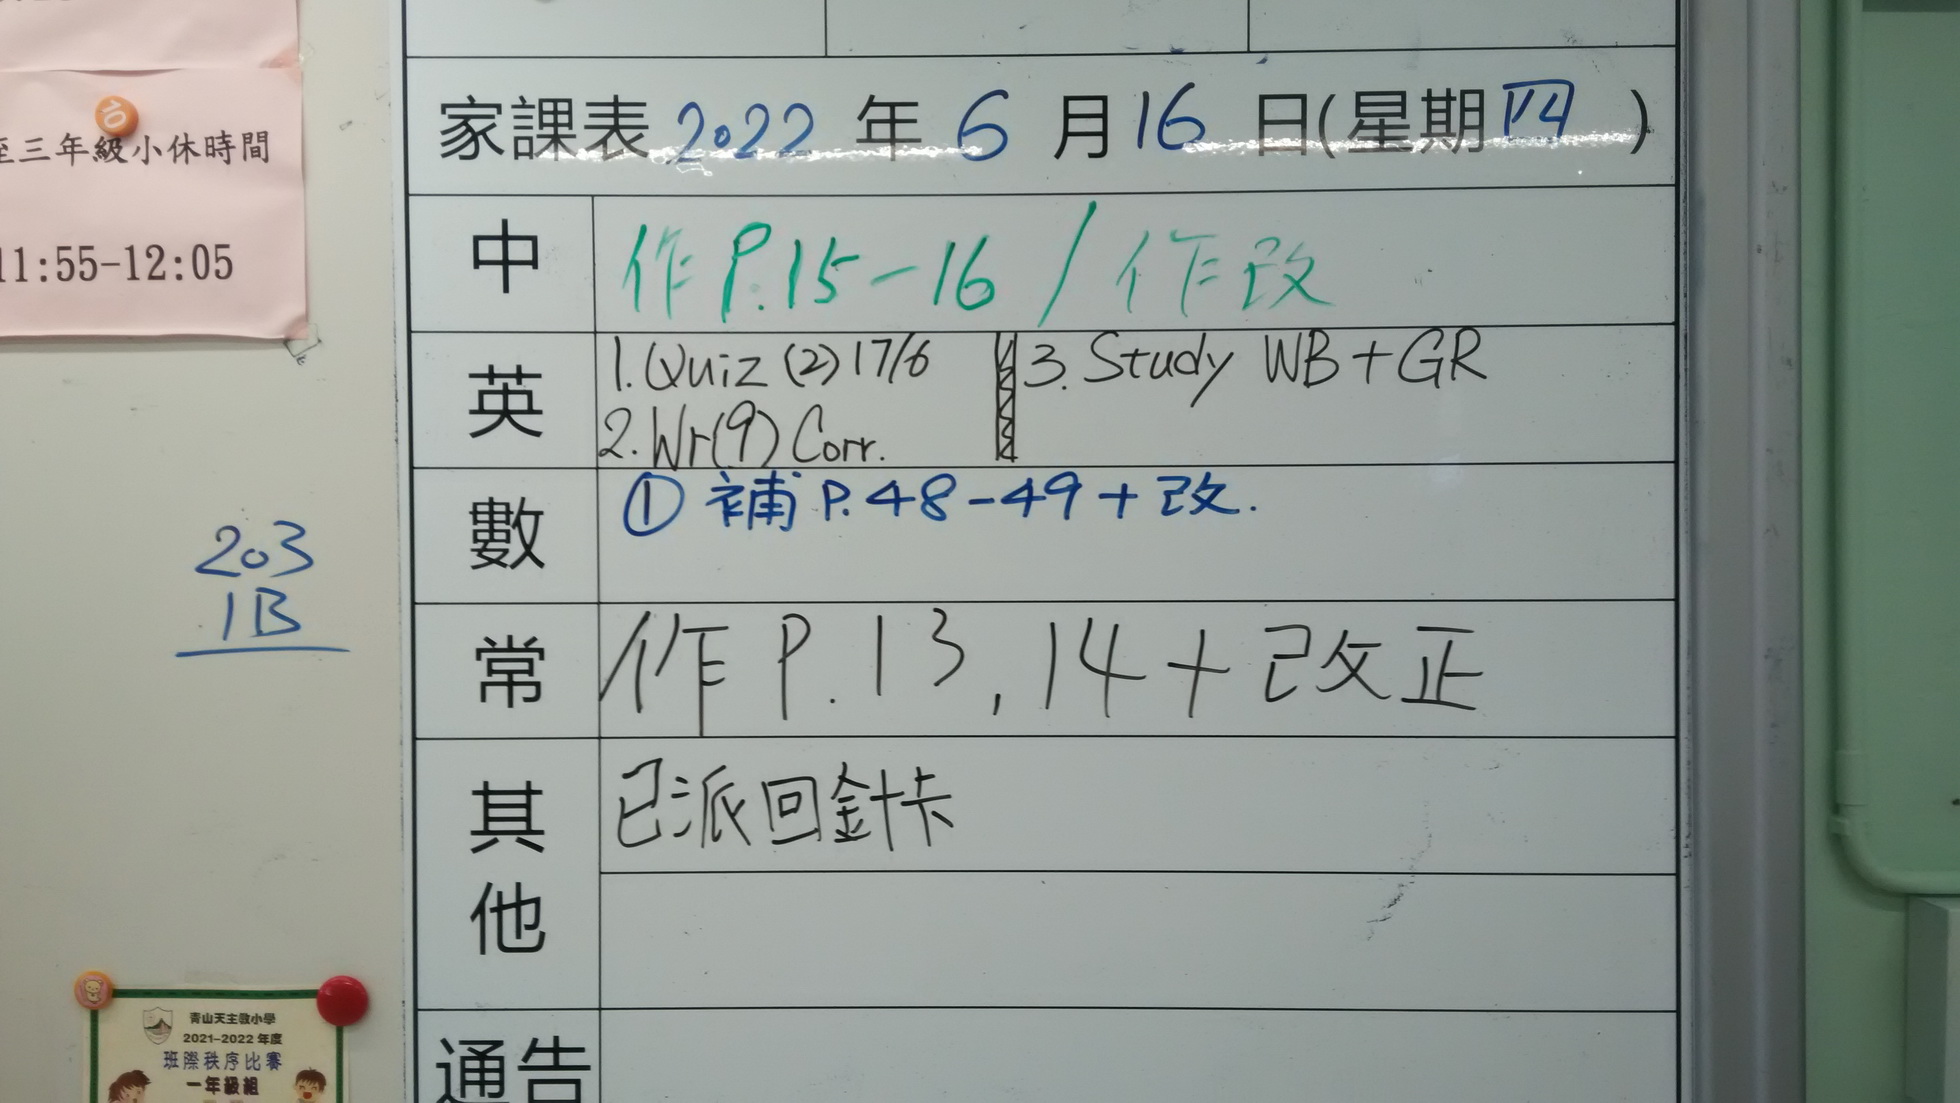 至三年級小休時間
11:55-12:05
家課表 2022 年 6 月 16 日(星期四)
中 作 P.15-16 / 作改
英 1. Quiz (2) 17/6 3. Study WB + GR
2. Wr(9) Corr.
數 ① 補 P.48-49 + 改.
常 作 P.13, 14 + 改正
其他 已派回針卡
通告
203
1B
10
青山天主教小學
2021-2022 年度
班際秩序比賽
一年級組